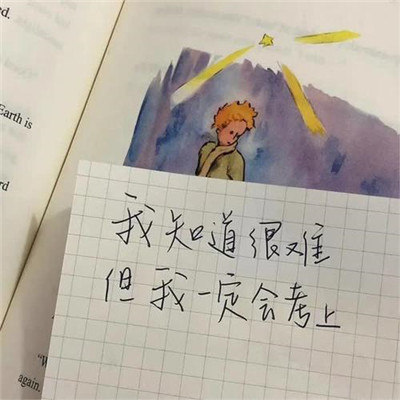 ed.
Earth is
rd
我知道很难
但我一定会考上
"W
again.